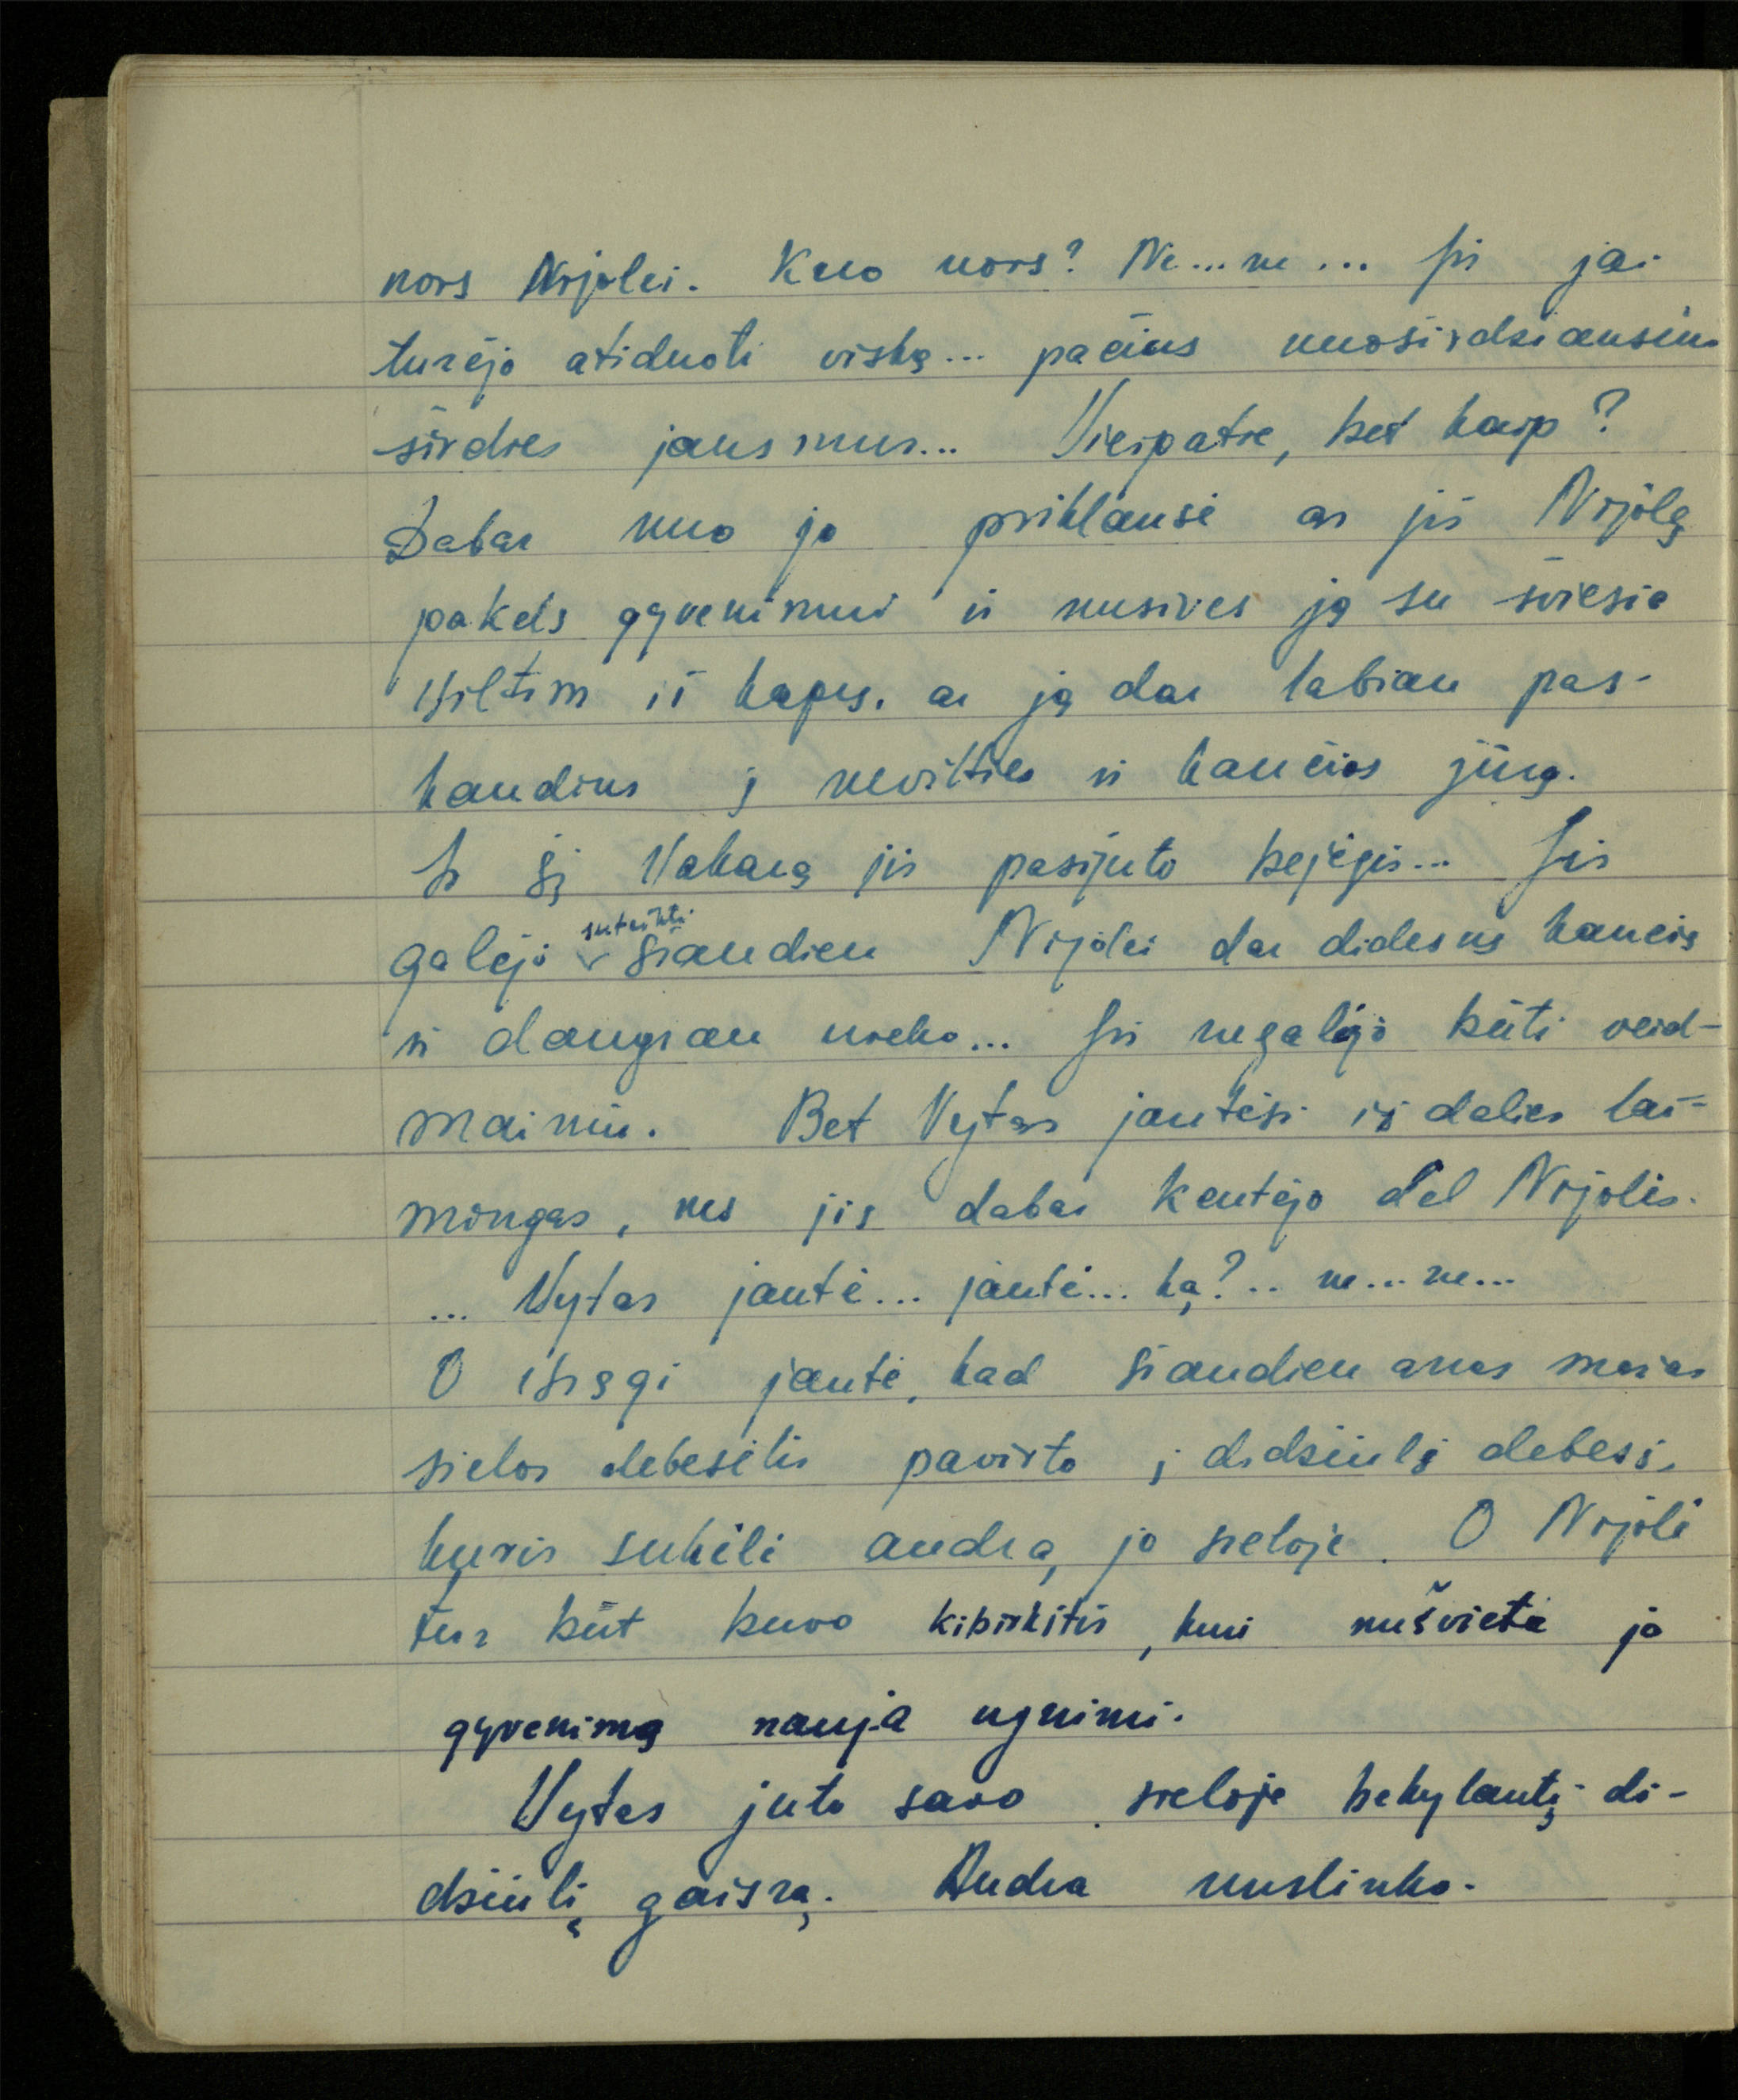 nors Nijolei. Kuo nors? Ne...ne... Jis jai
turėjo atiduoti viską... pačius nuoširdžiausius
širdies jausmus... Viešpatie, bet kaip?
Dabar nuo jo priklausė ar jis Nijolę
pakels gyvenimui ir nusives ją su šviesia
viltim iš kapų, ar ją dar labiau pas-
kandins į nevilties ir kančios jūrą.
Ir šį vakarą jis pasijuto bejėgis... Jis
galėjo suteikti šiandien Nijolei dar didesnę kančią
ir daugiau nieko... Jis negalėjo būti veid-
mainiu. Bet Vytas jautėsi iš dalies lai-
mingas, nes jis dabar kentėjo dėl Nijolės.
... Vytas jautė... jautė... ką?.. ne...ne...
O visgi jautė, kad šiandien anas mažas
sielos debesėlis pavirto į didžiulį debesį,
kuris sukėlė audrą jo sieloje. O Nijolė
tur būt buvo kibirkštis, kuri nušvietė jo
gyvenimą nauja ugnimi.
Vytas juto savo sieloje bekylantį di-
džiulį gaisrą. Audra nuslinko.